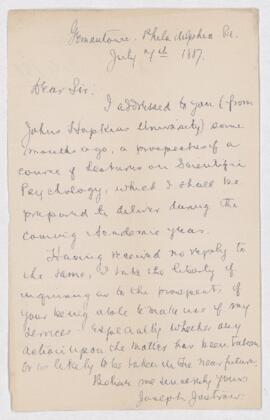 Germantown. Philadelphia Pa.
July 7th 1887.
Dear Sir:
I addressed to you (from
Johns Hopkins University) some
months ago, a prospectus of a
course of lectures on Scientific
Psychology, which I shall be
prepared to deliver during the
coming Academic year.
Having received no reply to
the same, I take the liberty of
inquiring as to the prospects of
your being able to make use of my
services & especially whether any
action upon the matter has been taken
or is likely to be taken in the near future.
Believe me sincerely yours
Joseph Jastrow.